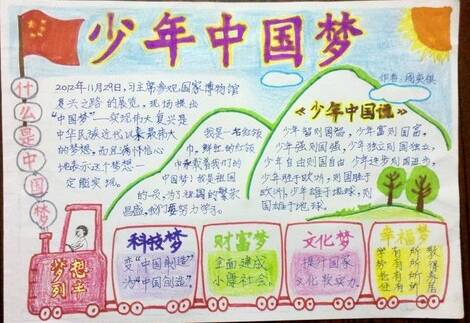 少年中国梦
作者:
什么是中国梦
2012年11月29日,习主席参观国家博物馆
复兴之路的展览,现场提出
“中国梦”——实现伟大复兴是
中华民族近代以来最伟大
的梦想,而且满怀信心
地表示这个梦想一
定能实现。
我是一名红领
巾,鲜红的红领
巾承载着我们的
中国梦!我是祖国
的一员,为了祖国的繁荣
昌盛,我们要努力学习。
《少年中国说》
少年智则国智,少年富则国富,
少年强则国强,少年独立则国独立,
少年自由则国自由,少年进步则国进步,
少年胜于欧洲,则国胜于
欧洲,少年雄于地球,则
国雄于地球。
梦想列车
科技梦
变“中国制造”
为“中国创造”。
财富梦
全面建成
小康社会。
文化梦
提升国家
文化软实力。
幸福梦
学有所教
劳有所得